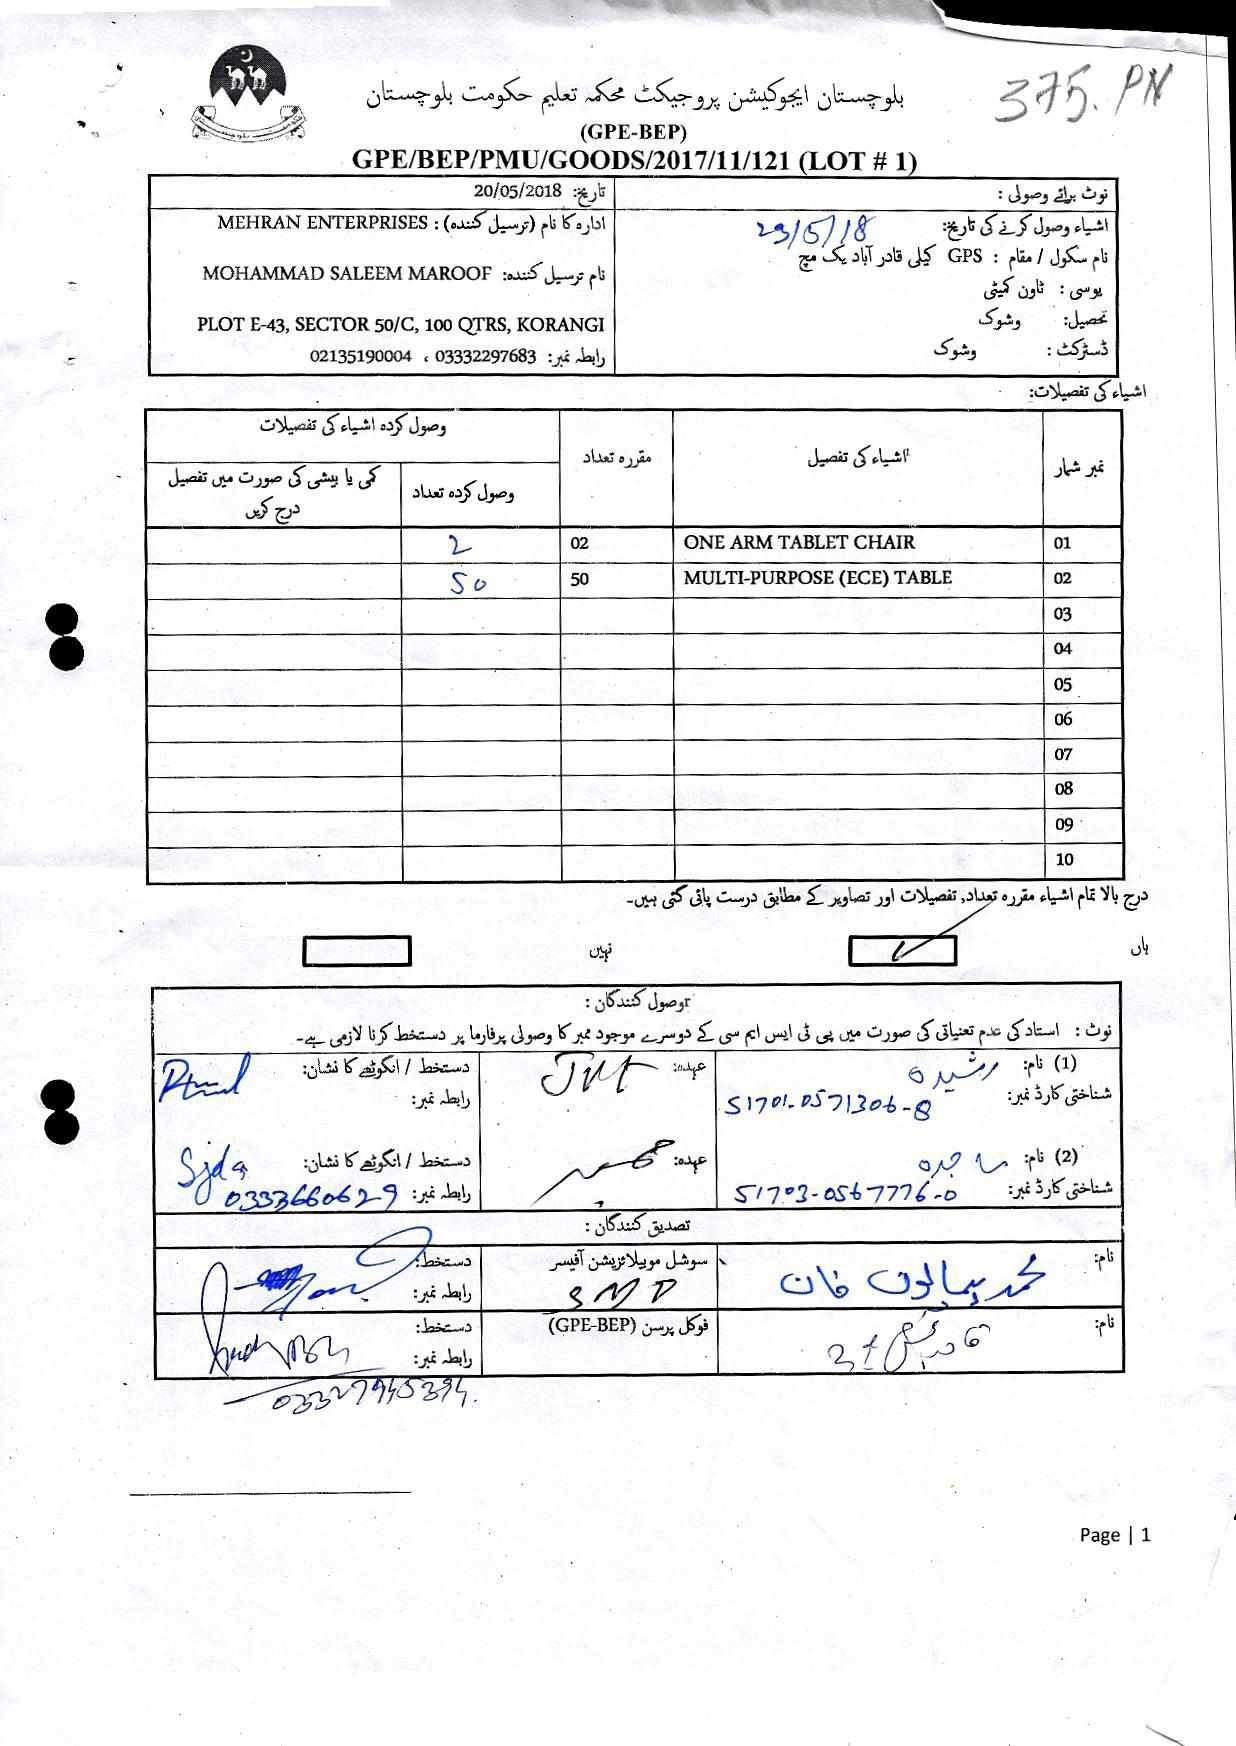 375. PN
بلوچستان ایجوکیشن پروجیکٹ محکمہ تعلیم حکومت بلوچستان
(GPE-BEP)
GPE/BEP/PMU/GOODS/2017/11/121 (LOT # 1)
نوٹ برائے وصولی :
تاریخ: 20/05/2018
اشیاء وصول کرنے کی تاریخ: 23/5/18
نام سکول / مقام : GPS کیلی قادر آباد یک مچ
یوسی : ٹاون کمیٹی
تحصیل: وشوک
ڈسٹرکٹ : وشوک
ادارہ کا نام (ترسیل کنندہ) : MEHRAN ENTERPRISES
نام ترسیل کنندہ: MOHAMMAD SALEEM MAROOF
PLOT E-43, SECTOR 50/C, 100 QTRS, KORANGI
رابطہ نمبر: 03332297683 ، 02135190004
اشیاء کی تفصیلات:
نمبر شمار
اشیاء کی تفصیل
مقررہ تعداد
وصول کردہ اشیاء کی تفصیلات
وصول کردہ تعداد
کمی یا بیشی کی صورت میں تفصیل
درج کریں
01 ONE ARM TABLET CHAIR 02 2
02 MULTI-PURPOSE (ECE) TABLE 50 50
03
04
05
06
07
08
09
10
درج بالا تمام اشیاء مقررہ تعداد, تفصیلات اور تصاویر کے مطابق درست پائی گئی ہیں۔
ہاں
نہیں
وصول کنندگان :
نوٹ : استاد کی عدم تعنیاتی کی صورت میں پی ٹی ایس ایم سی کے دوسرے موجود ممبر کا وصولی پرفارما پر دستخط کرنا لازمی ہے۔
(1) نام: رشیدہ
عہدہ: JVT
دستخط / انگوٹھے کا نشان:
شناختی کارڈ نمبر: 51701-0571306-8
رابطہ نمبر:
(2) نام: ساجدہ
عہدہ: ممبر
دستخط / انگوٹھے کا نشان: Sjda
شناختی کارڈ نمبر: 51703-0567776-0
رابطہ نمبر: 0333660629
تصدیق کنندگان :
نام: محمد ہمایوں خان
سوشل موبیلائزیشن آفیسر
دستخط:
رابطہ نمبر:
نام:
فوکل پرسن (GPE-BEP)
دستخط:
رابطہ نمبر:
03327945394.
Page | 1